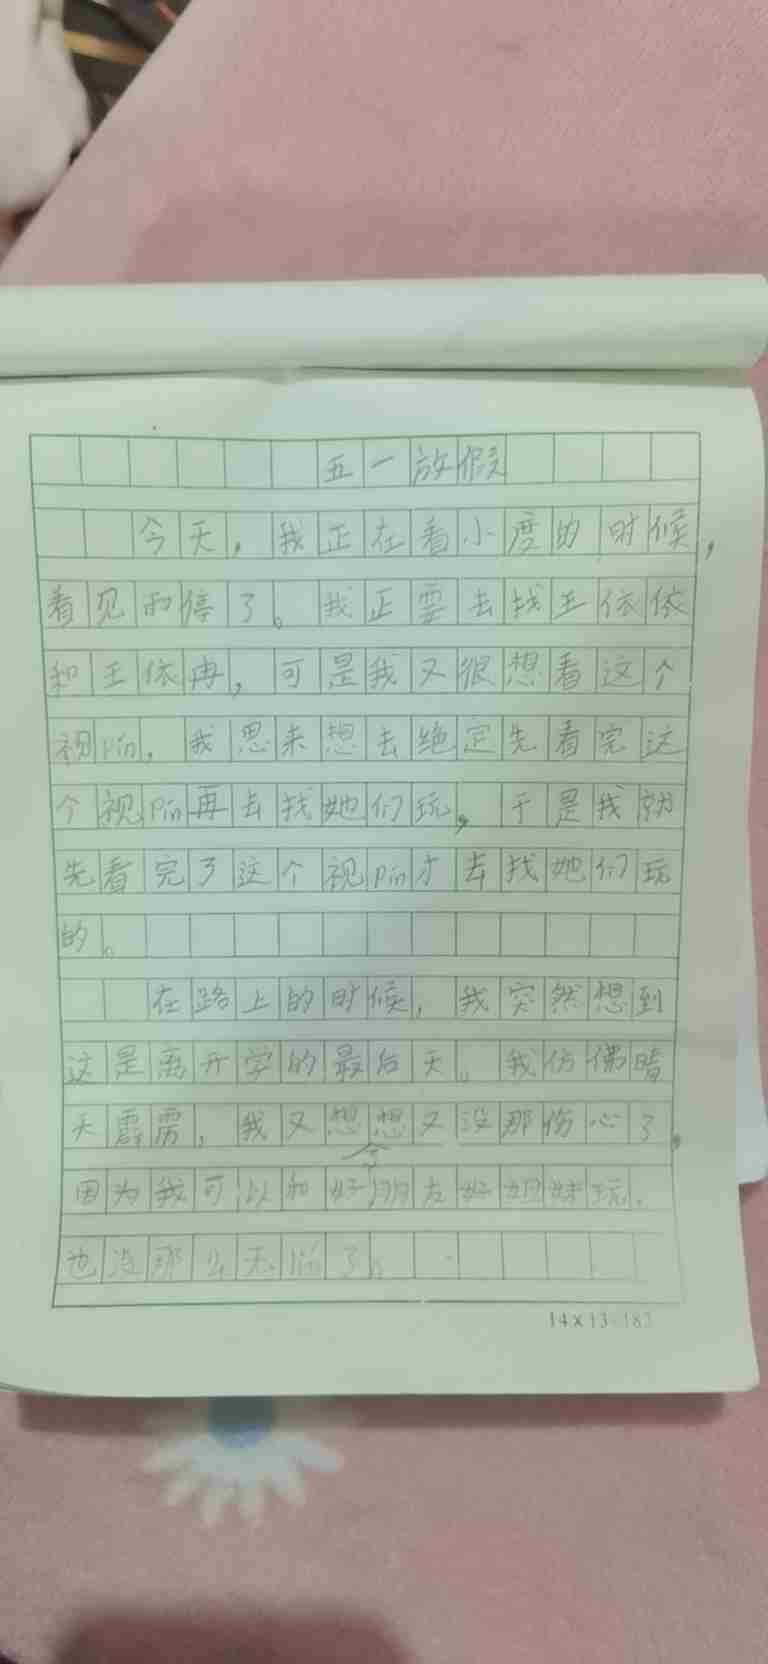 五一放假
今天，我正在看小度的时候，
看见雨停了。我正要去找王依依
和王依冉，可是我又很想看这个
视pin，我思来想去绝定先看完这
个视pin再去找她们玩，于是我就
先看完了这个视pin才去找她们玩
的。
在路上的时候，我突然想到
这是离开学的最后天。我仿佛晴
天霹雳，我又想想又没那伤心了，
因为我可以和好朋友好姐妹玩，
也没那么无聊了。
14×13=182